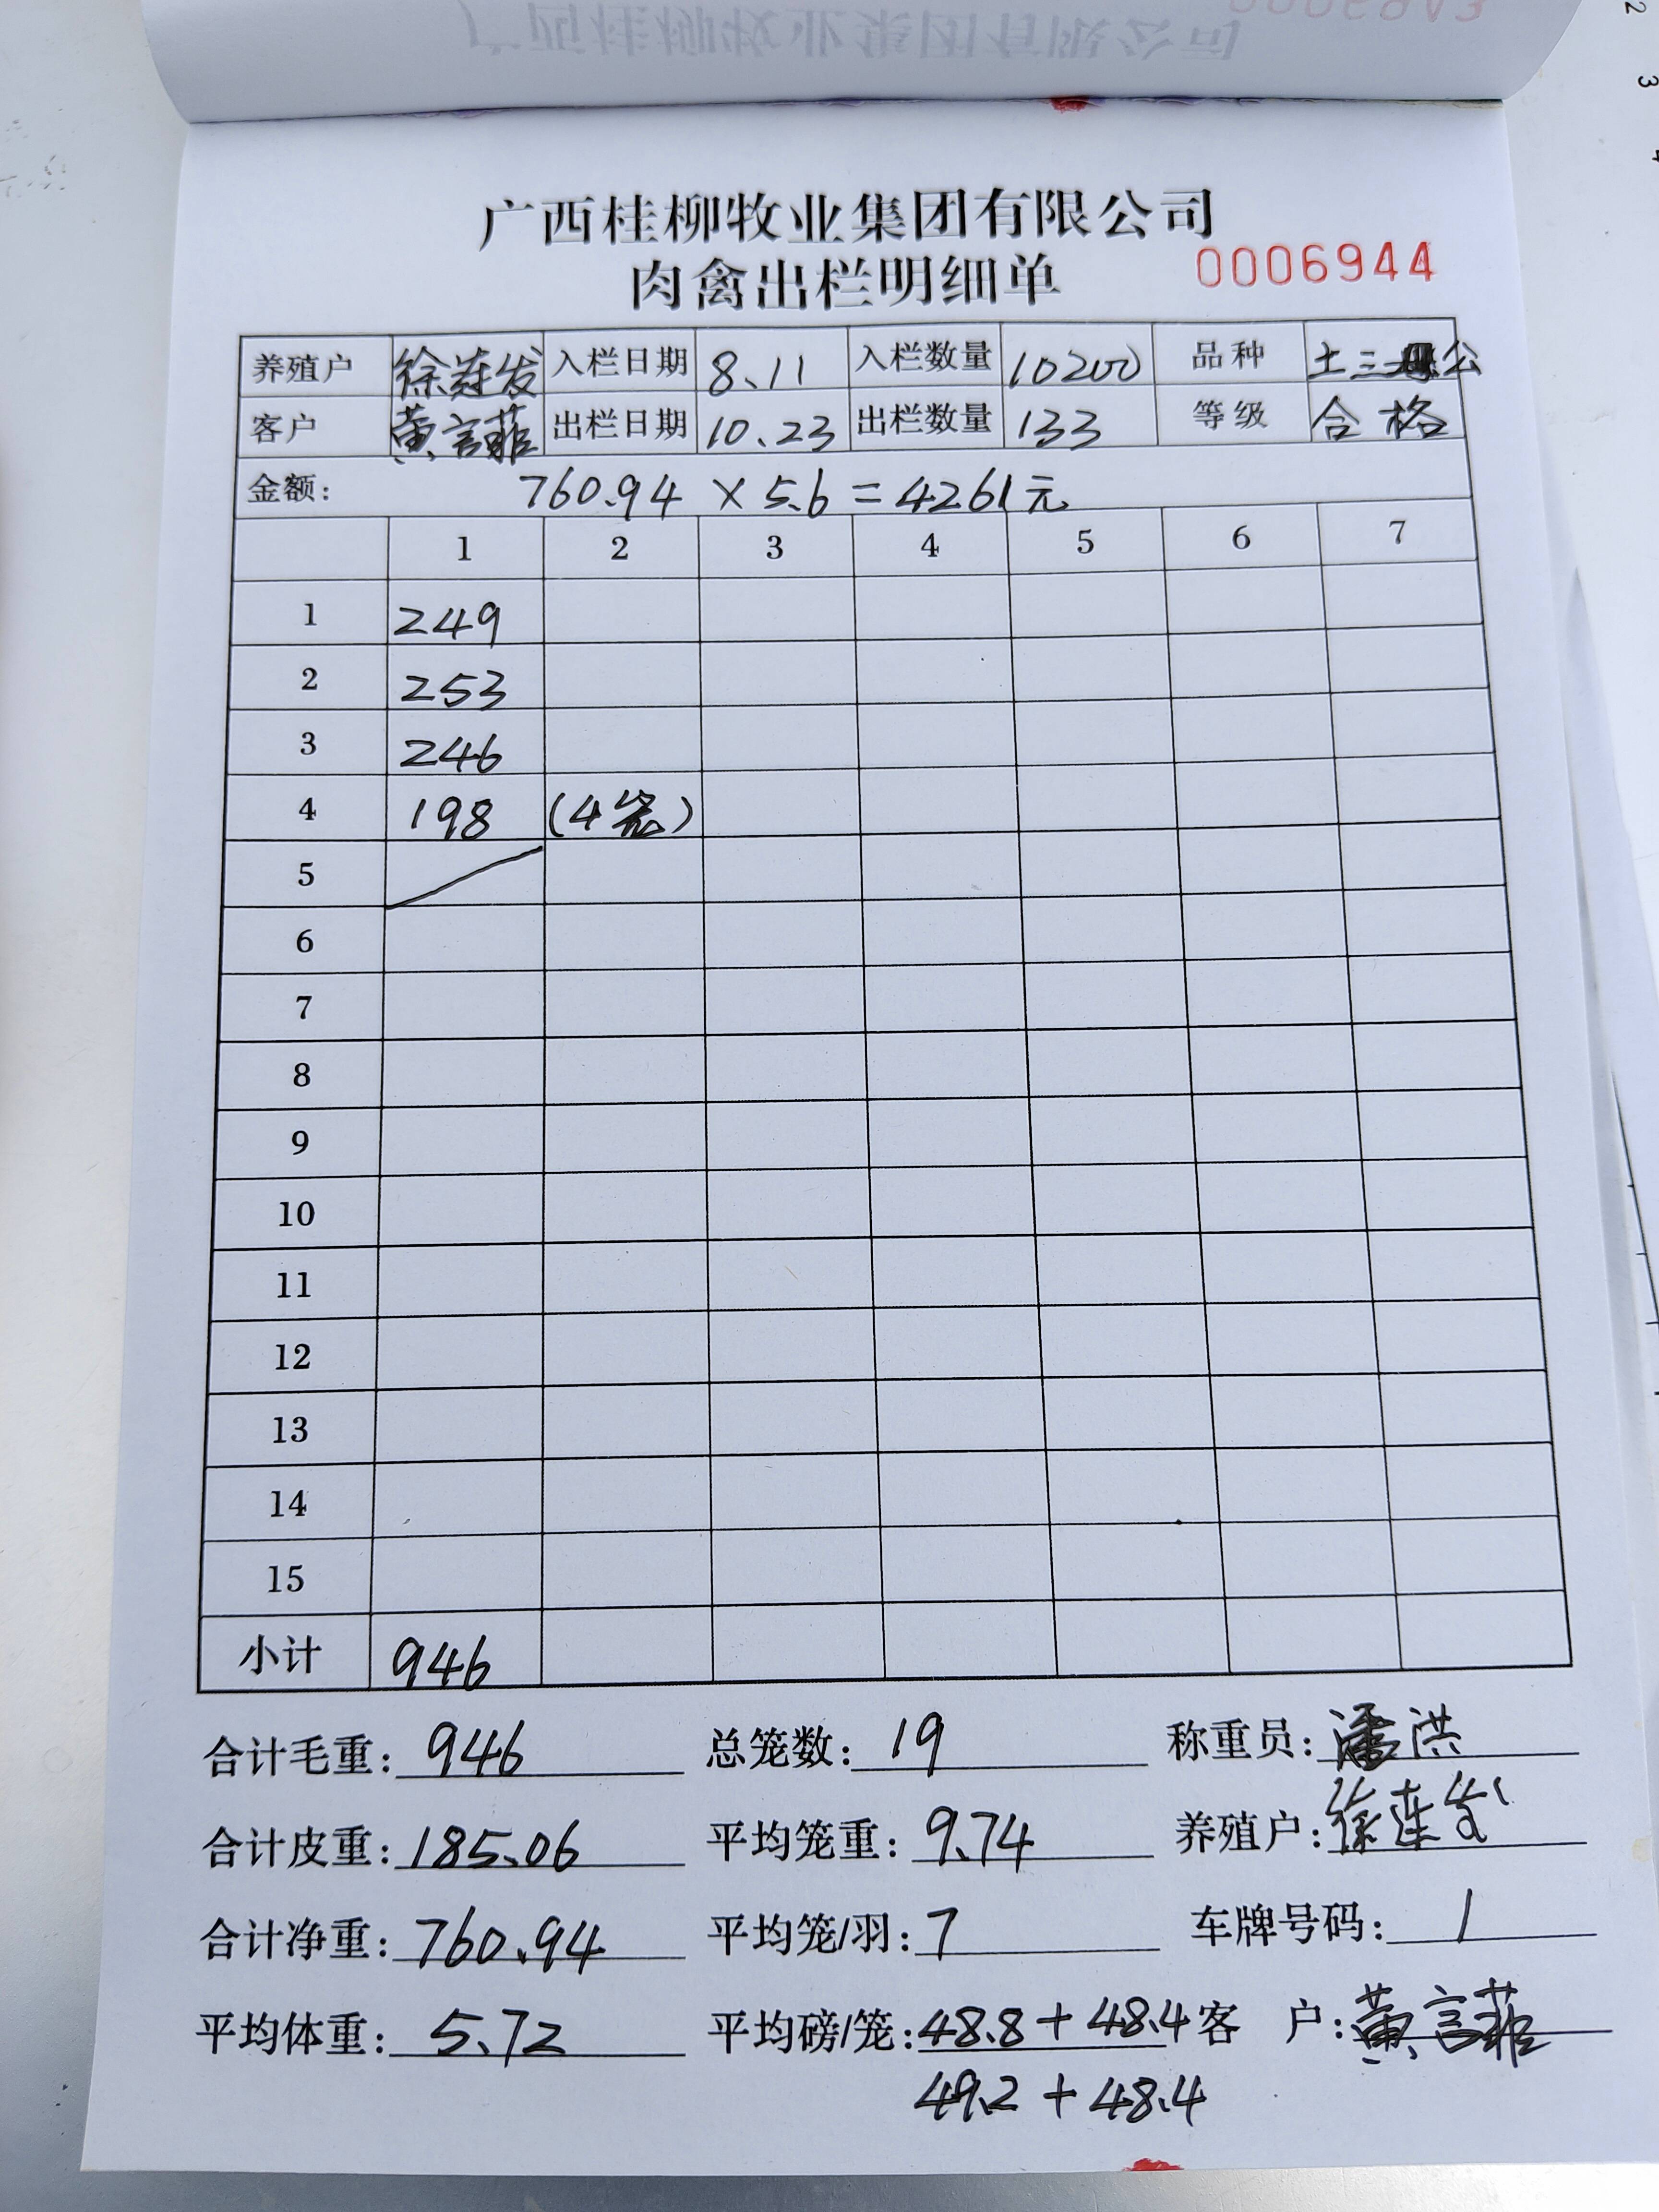 广西桂柳牧业集团有限公司
肉禽出栏明细单 0006944
养殖户 徐连发 入栏日期 8.11 入栏数量 10200 品种 土三公
客户 黄言菲 出栏日期 10.23 出栏数量 133 等级 合格
金额: 760.94 × 5.6 = 4261元
1 2 3 4 5 6 7
1 249
2 253
3 246
4 198 (4笼)
5
6
7
8
9
10
11
12
13
14
15
小计 946
合计毛重: 946 总笼数: 19 称重员: 潘洪
合计皮重: 185.06 平均笼重: 9.74 养殖户: 徐连发
合计净重: 760.94 平均笼/羽: 7 车牌号码: 1
平均体重: 5.72 平均磅/笼: 48.8 + 48.4 客 户: 黄言菲
49.2 + 48.4